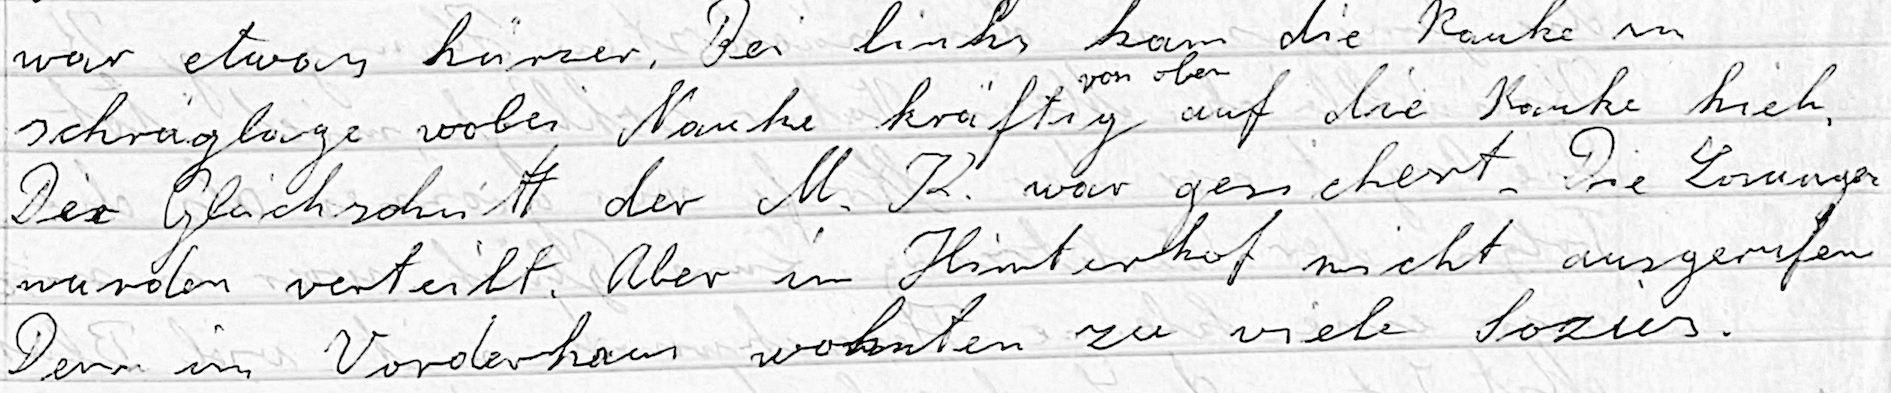 war etwas kürzer. Bei links kam die Pauke in
schräglage wobei Nauke kräftig von oben auf die Pauke hieb.
Der Gleichschritt der M. K. war gesichert. Die Losungen
wurden verteilt. Aber im Hinterhof nicht ausgerufen
Denn im Vorderhaus wohnten zu viele Sozius.